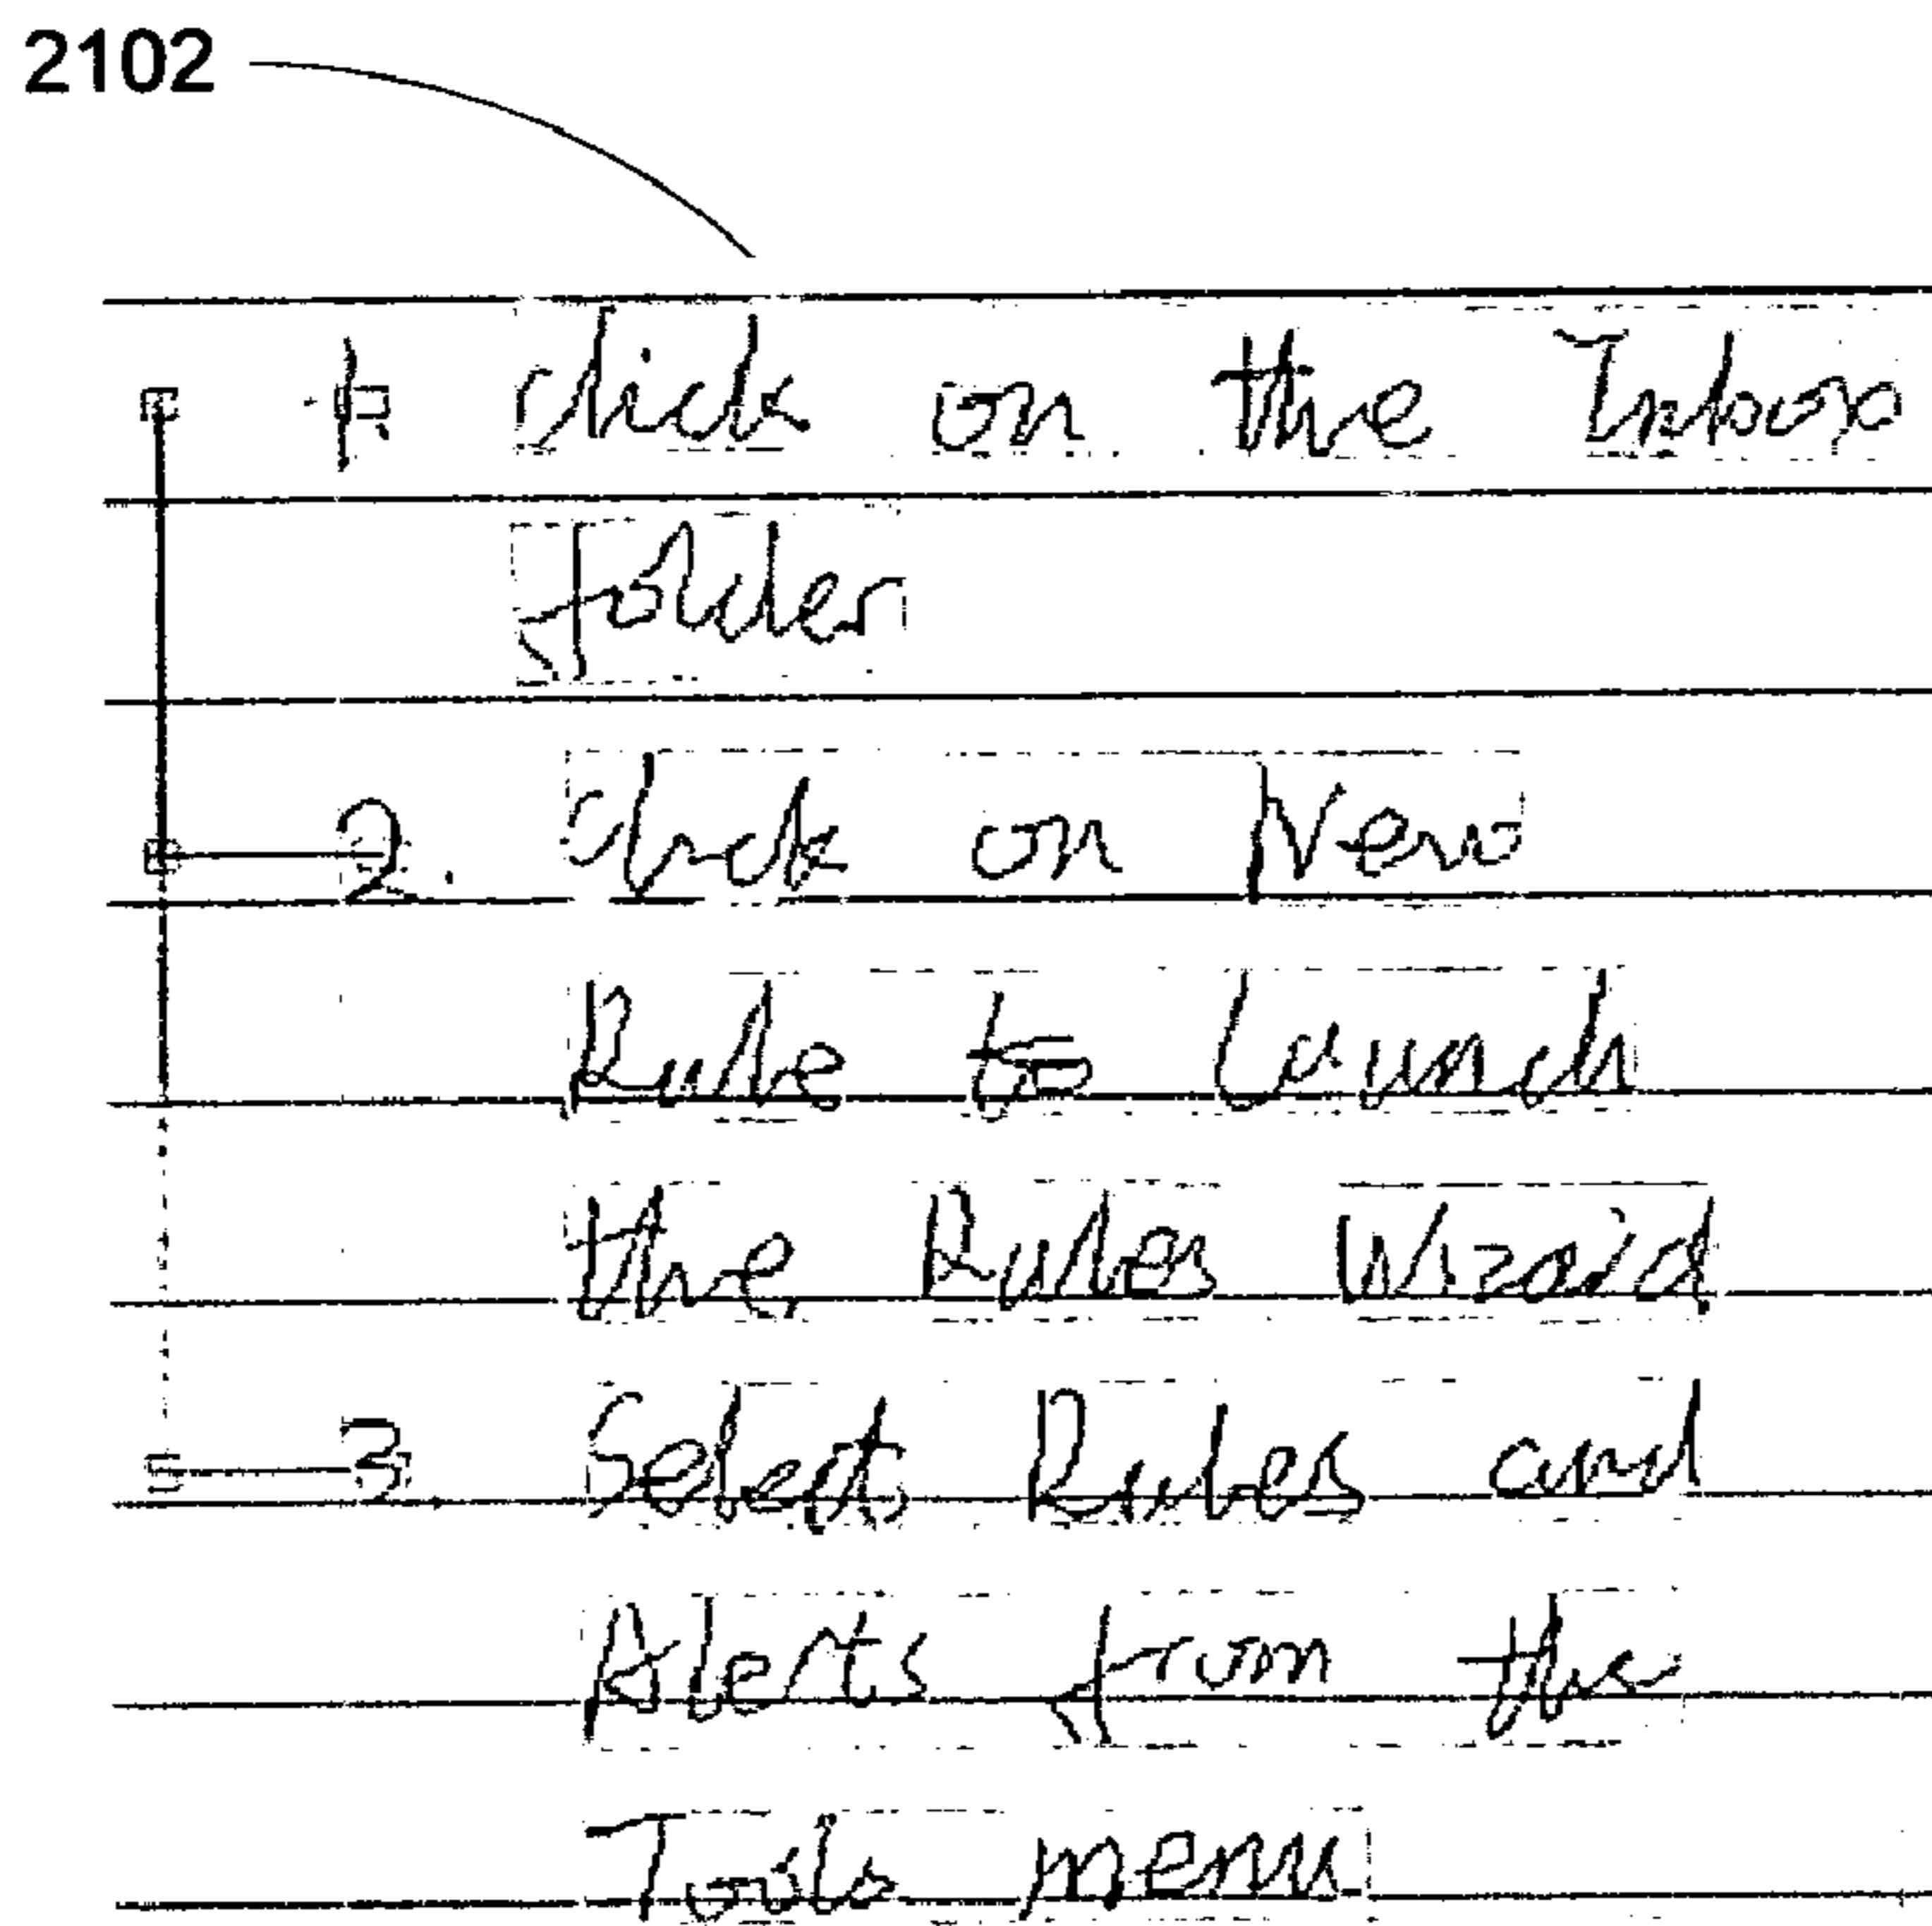 2102
1. click on the Inbox
folder
2. Click on New
Rule to launch
the Rules Wizard
3 Select Rules and
Alerts from the
Tools menu